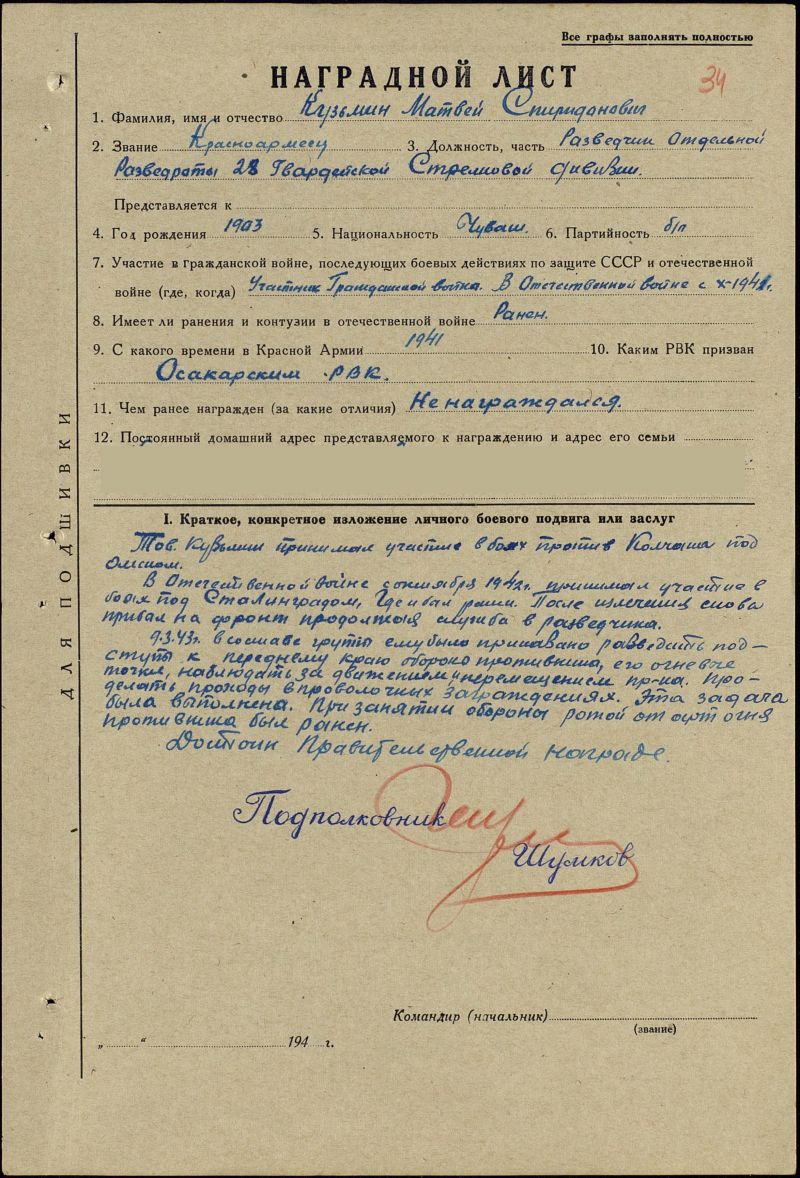 Все графы заполнять полностью
НАГРАДНОЙ ЛИСТ
34
1. Фамилия, имя и отчество Кузьмин Матвей Спиридонович
2. Звание Красноармеец 3. Должность, часть Разведчик Отдельной
Разведроты 28 Гвардейской Стрелковой дивизии.
Представляется к
4. Год рождения 1903 5. Национальность Чуваш. 6. Партийность б/п
7. Участие в гражданской войне, последующих боевых действиях по защите СССР и отечественной
войне (где, когда) Участник Гражданской война. В Отечественной войне с X-1941г.
8. Имеет ли ранения и контузии в отечественной войне Ранен.
9. С какого времени в Красной Армии 1941 10. Каким РВК призван
Осакарским РВК.
11. Чем ранее награжден (за какие отличия) Не награждался.
12. Постоянный домашний адрес представляемого к награждению и адрес его семьи
I. Краткое, конкретное изложение личного боевого подвига или заслуг
Тов. Кузьмин принимал участие в боях против Колчака под
Омском.
В Отечественной войне с октября 1942г. принимал участие в
боях под Сталинградом, Где и был ранен. После излечения снова
прибыл на фронт продолжая служба в разведчика.
9.3.43г. в составе группы ему было приказано разведать под-
ступы к переднему краю оборона противника, его огневые
точки, наблюдать за движением и перемещением пр-ка. Про-
делать проходы в проволочных заграждениях. Эта задача
была выполнена. При занятии оборона ротой от арт огня
противника был ранен.
Достоин Правительственной награде.
Подполковник
Шумков
Командир (начальник)
(звание)
„ “ 194 г.
ДЛЯ ПОДШИВКИ